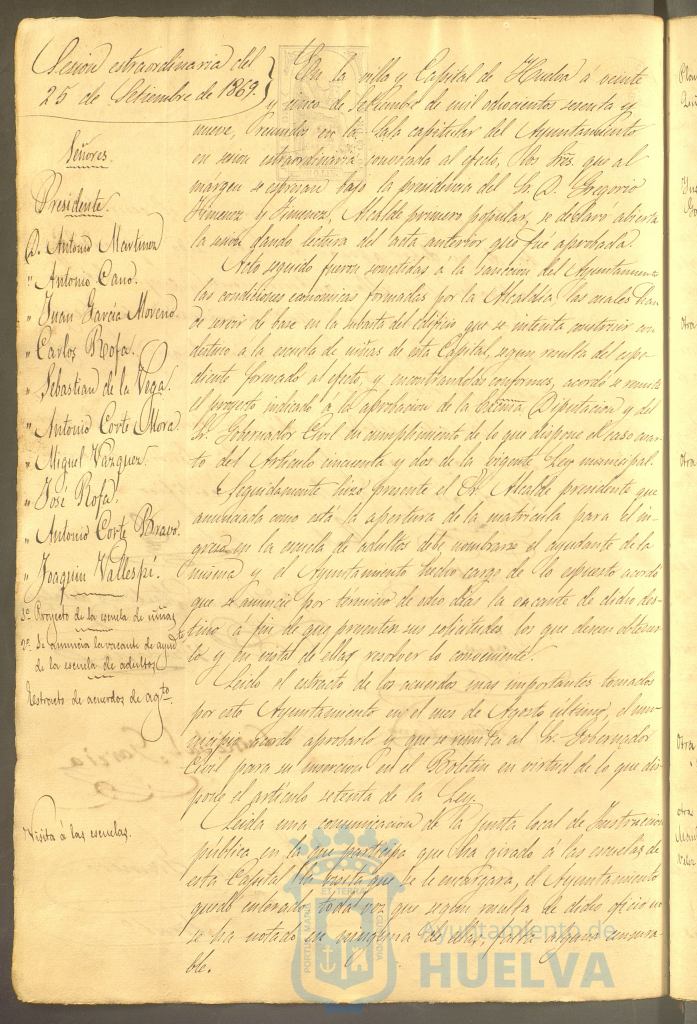 Sesion extraordinaria del
25 de Setiembre de 1869.
Señores.
Presidente.
D. Antonio Martinez
" Antonio Cano.
" Juan García Moreno.
" Carlos Rofa.
" Sebastian de la Vega.
" Antonio Corte Mora.
" Miguel Vazquez.
" José Rofa.
" Antonio Corte Bravo.
" Joaquin Vallespi.
1º Proyecto de la escuela de niñas
2º Se anuncia la vacante de ayudte
de la escuela de adultos
Estracto de acuerdos de agto.
Visita á las escuelas.
En la villa y Capital de Huelva á veinte
y cinco de Setiembre de mil ochocientos sesenta y
nueve, reunidos en la Sala capitular del Ayuntamiento
en sesion estraordinaria convocada al efecto, los Sres. que al
márgen se espresan bajo la presidencia del Sr. D. Gregorio
Jimenez y Jimenez, Alcalde primero popular, se declaró abierta
la sesion dando lectura del acta anterior que fue aprobada.
Acto seguido fueron sometidas á la sancion del Ayuntamiento
las condiciones económicas formadas por la Alcaldia, las cuales han
de servir de base en la subasta del edificio que se intenta construir con
destino á la escuela de niñas de esta Capital, segun resulta del espe-
diente formado al efecto, y encontrandolas conformes, acordó se remita
el proyecto indicado á la aprobacion de la Excma. Diputacion y del
Sr. Gobernador Civil en cumplimiento de lo que dispone el caso cuar-
to del Artículo cincuenta y dos de la vigente Ley municipal.
Seguidamente hizo presente el Sr. Alcalde presidente que
anunciada como está la apertura de la matricula para el in-
greso en la escuela de adultos debe nombrarse el ayudante de la
misma y el Ayuntamiento hecho cargo de lo espuesto acordó
que se anuncie por término de ocho dias la vacante de dicho des-
tino á fin de que presenten sus solicitudes los que deseen obtener-
lo y en vista de ellas resolver lo conveniente.
Leido el estracto de los acuerdos mas importantes tomados
por este Ayuntamiento en el mes de Agosto ultimo, el mu-
nicipio acordó aprobarlo y que se remita al Sr. Gobernador
Civil para su insercion en el Boletin en virtud de lo que dis-
pone el artículo setenta de la Ley.
Leida una comunicacion de la Junta local de Instruccion
pública en la que participa que ha girado á las escuelas de
esta Capital la visita que se le encargara, el Ayuntamiento
quedó enterado, toda vez que segun resulta de dicho oficio no
se ha notado en ninguna de ellas, falta alguna censura-
ble.
Ayuntamiento de
HUELVA